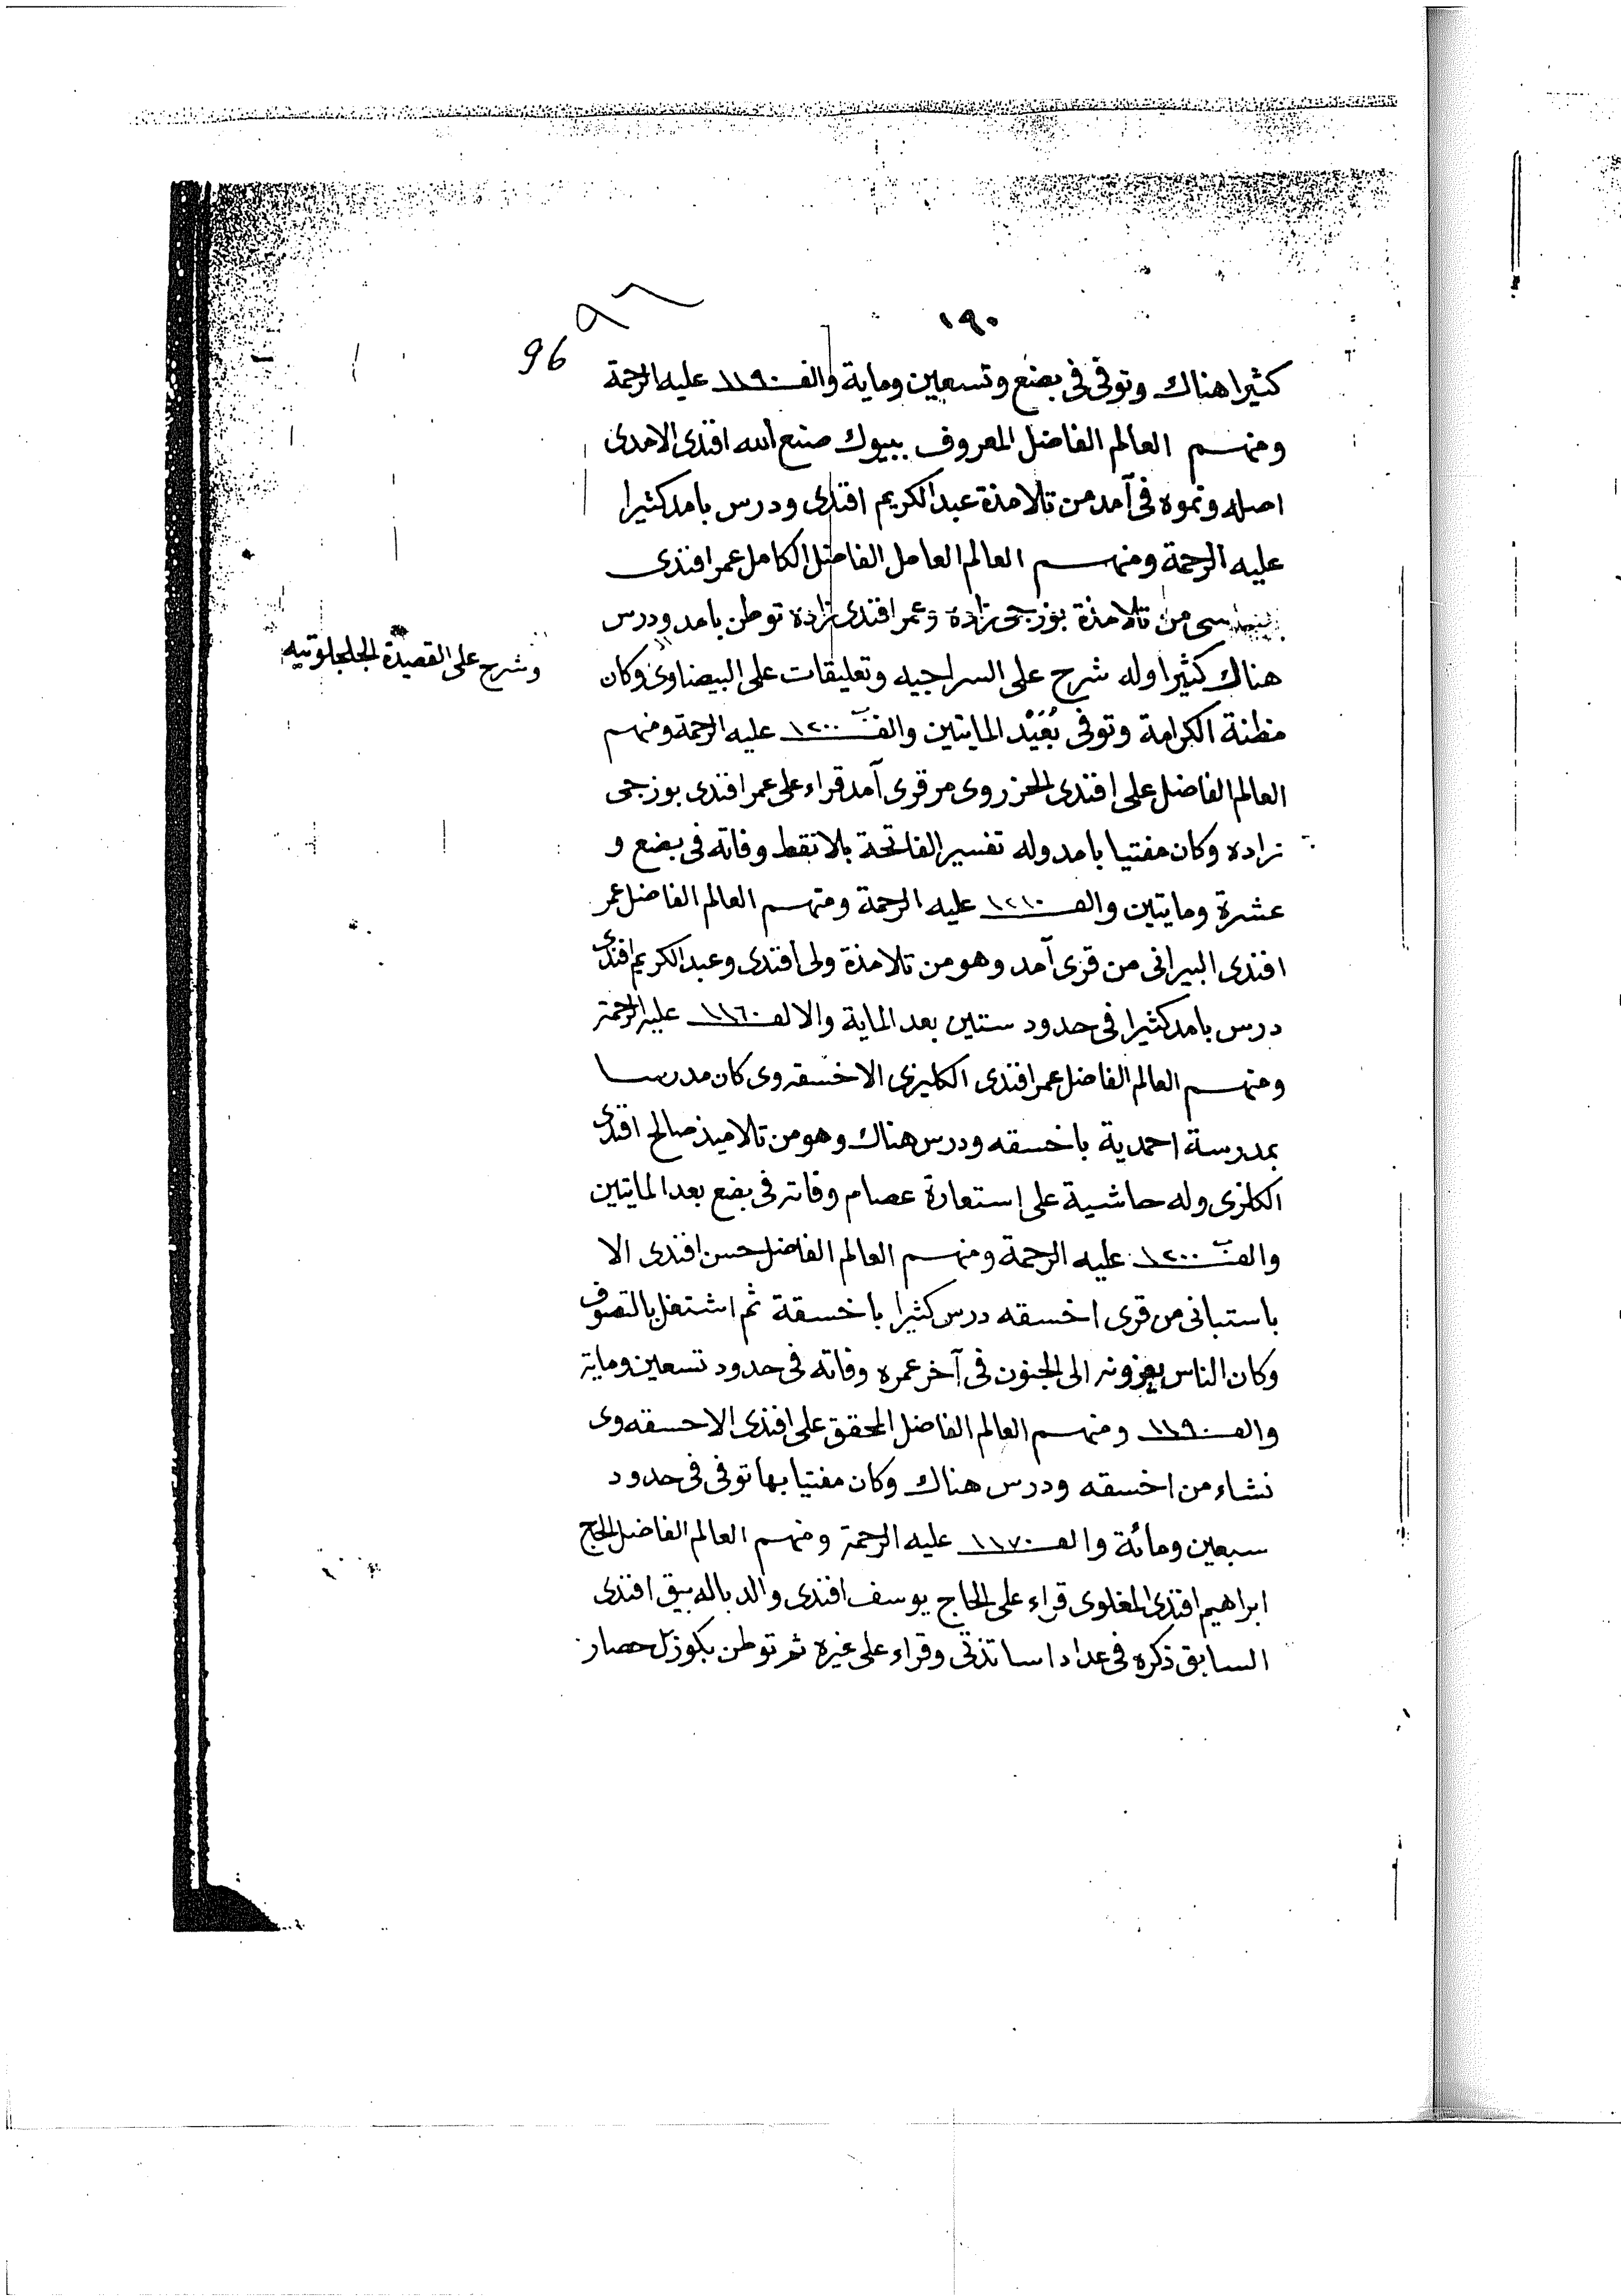 ١٩٠
٩٦
96
كثيرا هناك وتوفى فى بضع وتسعين وماية والف ١١٩٠ عليه الرحمة
ومنهم العالم الفاضل المعروف ببيوك صنع الله افندى الامدى
اصله ونموه فى آمد من تلامذة عبد الكريم افندى ودرس بامد كثيرا
عليه الرحمة ومنهم العالم العامل الفاضل الكامل عمر افندى
من تلامذة بوزجى زاده وعمر افندى زاده توطن بامد ودرس
هناك كثيرا وله شرح على السراجيه وتعليقات على البيضاوى وكان
وشرح على القصيدة الجلجلوتيه
مظنة الكرامة وتوفى بُعَيْد المايتين والف ١٢٠٠ عليه الرحمة ومنهم
العالم الفاضل على افندى الحزروى من قرى آمد قراء على عمر افندى بوزجى
زاده وكان مفتيا بامد وله تفسير الفاتحة بلا نقط وفاته فى بضع و
عشرة ومايتين والف ١٢١٠ عليه الرحمة ومنهم العالم الفاضل عمر
افندى البيرانى من قرى آمد وهو من تلامذة ولى افندى وعبد الكريم افندى
درس بامد كثيرا فى حدود ستين بعد الماية والالف ١١٦٠ عليه الرحمة
ومنهم العالم الفاضل عمر افندى الكليزى الاخسقه وى كان مدرسا
بمدرسة احمدية باخسقه ودرس هناك وهو من تلاميذ صالح افندى
الكلزى وله حاشية على استعارة عصام وفاته فى بضع بعد المايتين
والف ١٢٠٠ عليه الرحمة ومنهم العالم الفاضل حسن افندى الا
باستبانى من قرى اخسقه درس كثيرا باخسقة ثم اشتغل بالتصوف
وكان الناس يعزونه الى الجنون فى آخر عمره وفاته فى حدود تسعين وماية
والف ١١٩٠ ومنهم العالم الفاضل المحقق على افندى الاحسقه وى
نشاء من اخسقه ودرس هناك وكان مفتيا بها توفى فى حدود
سبعين ومائة والف ١١٧٠ عليه الرحمة ومنهم العالم الفاضل الحاج
ابراهيم افندى المغلوى قراء على الحاج يوسف افندى والد باله بيق افندى
السابق ذكره فى عداد اساتذتى وقراء على غيره ثم توطن بكوزل حصار